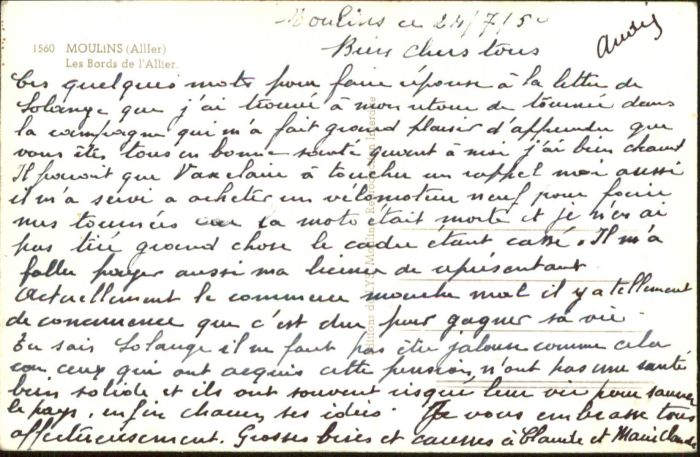 Moulins ce 24/7/50
André
1560 MOULINS (Allier)
Les Bords de l'Allier.
Bien chers tous
Ces quelques mots pour faire réponse à la lettre de
Solange que j'ai trouvé à mon retour de tournée dans
la campagne qui m'a fait grand plaisir d'apprendre que
vous êtes tous en bonne santé quant à moi j'ai bien chaud
Il parait que Vaxelaire à toucher un rappel moi aussi
il m'a servi a acheter un vélomoteur neuf pour faire
mes tournées car la moto était morte et je n'en ai
pas tiré grand chose le cadre étant cassé. Il m'a
fallu payer aussi ma licence de représentant
Actuellement le commerce marche mal il y a tellement
de concurrence que c'est dur pour gagner sa vie
Tu sais Solange il ne faut pas être jalouse comme cela
car ceux qui ont acquis cette pension, n'ont pas une santé
bien solide et ils ont souvent risqué leur vie pour sauver
le pays. enfin chacun ses idées. Je vous embrasse tous
affectueusement. Grosses bises et caresses à Claude et Marie Claude